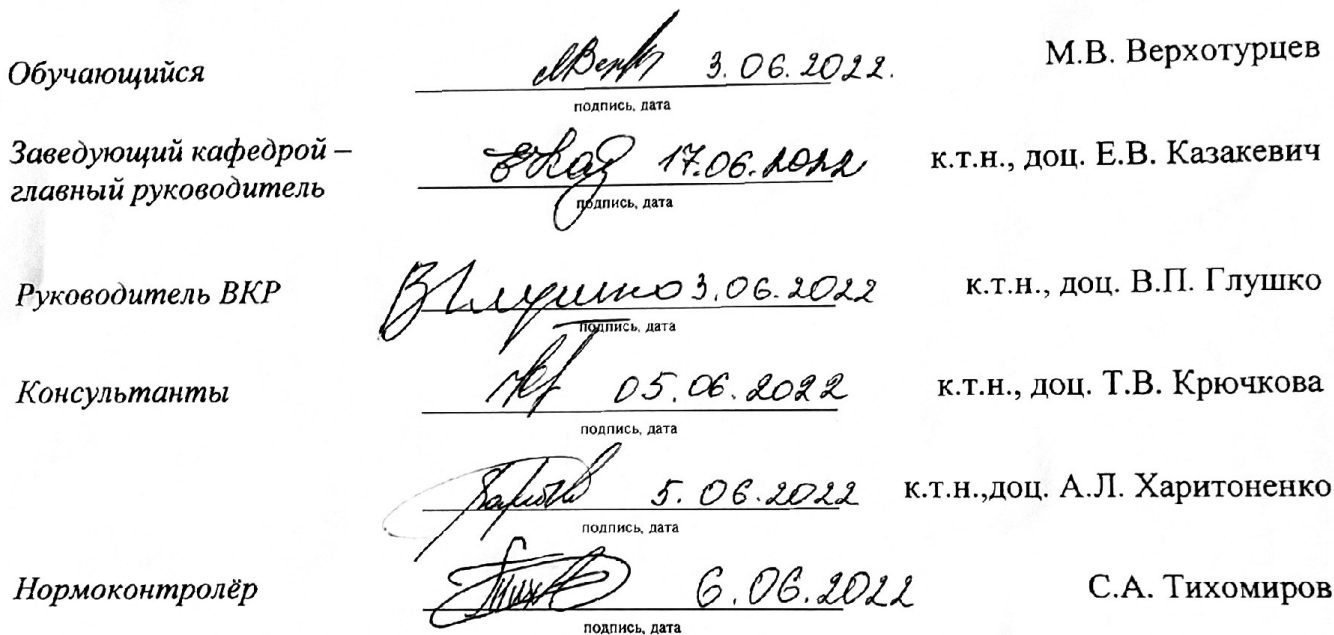 Обучающийся 3.06.2022. М.В. Верхотурцев
подпись, дата
Заведующий кафедрой – 
главный руководитель 17.06.2022 к.т.н., доц. Е.В. Казакевич
подпись, дата
Руководитель ВКР ВГлушко 3.06.2022 к.т.н., доц. В.П. Глушко
подпись, дата
Консультанты 05.06.2022 к.т.н., доц. Т.В. Крючкова
подпись, дата
5.06.2022 к.т.н.,доц. А.Л. Харитоненко
подпись, дата
Нормоконтролёр 6.06.2022 С.А. Тихомиров
подпись, дата